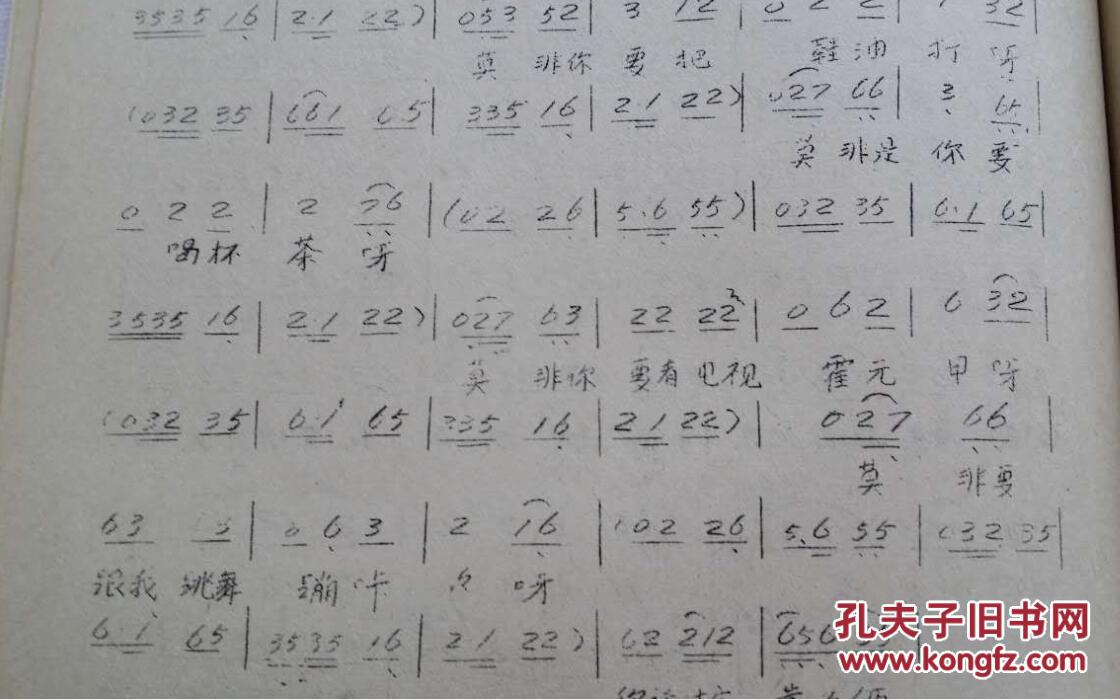 3535 16 | 2·1 22) | 053 52 | 3 12 | 0 2 2 | 1 32
莫 非你 要 把 鞋油 打 呀
(032 35 | 661 65 | 335 16 | 2·1 22) | 027 66 | 3 65
莫 非是 你 要
0 2 2 | 2 76 | (02 26 | 5·6 55) | 032 35 | 6·1 65 |
喝杯 茶 呀
3535 16 | 2·1 22) | 027 63 | 22 22 | 0 6 2 | 6 32 |
莫 非你 要有 电视 霍元 甲 呀
(032 35 | 6·1 65 | 335 16 | 2·1 22) | 027 66 |
莫 非要
63 | 0 6 3 | 2 16 | (02 26 | 5·6 55 | 032 35 |
跟我 跳舞 蹦 咔 呀
6·1 65 | 3535 16 | 2·1 22) | 62 212 | 656
孔夫子旧书网
www.kongfz.com